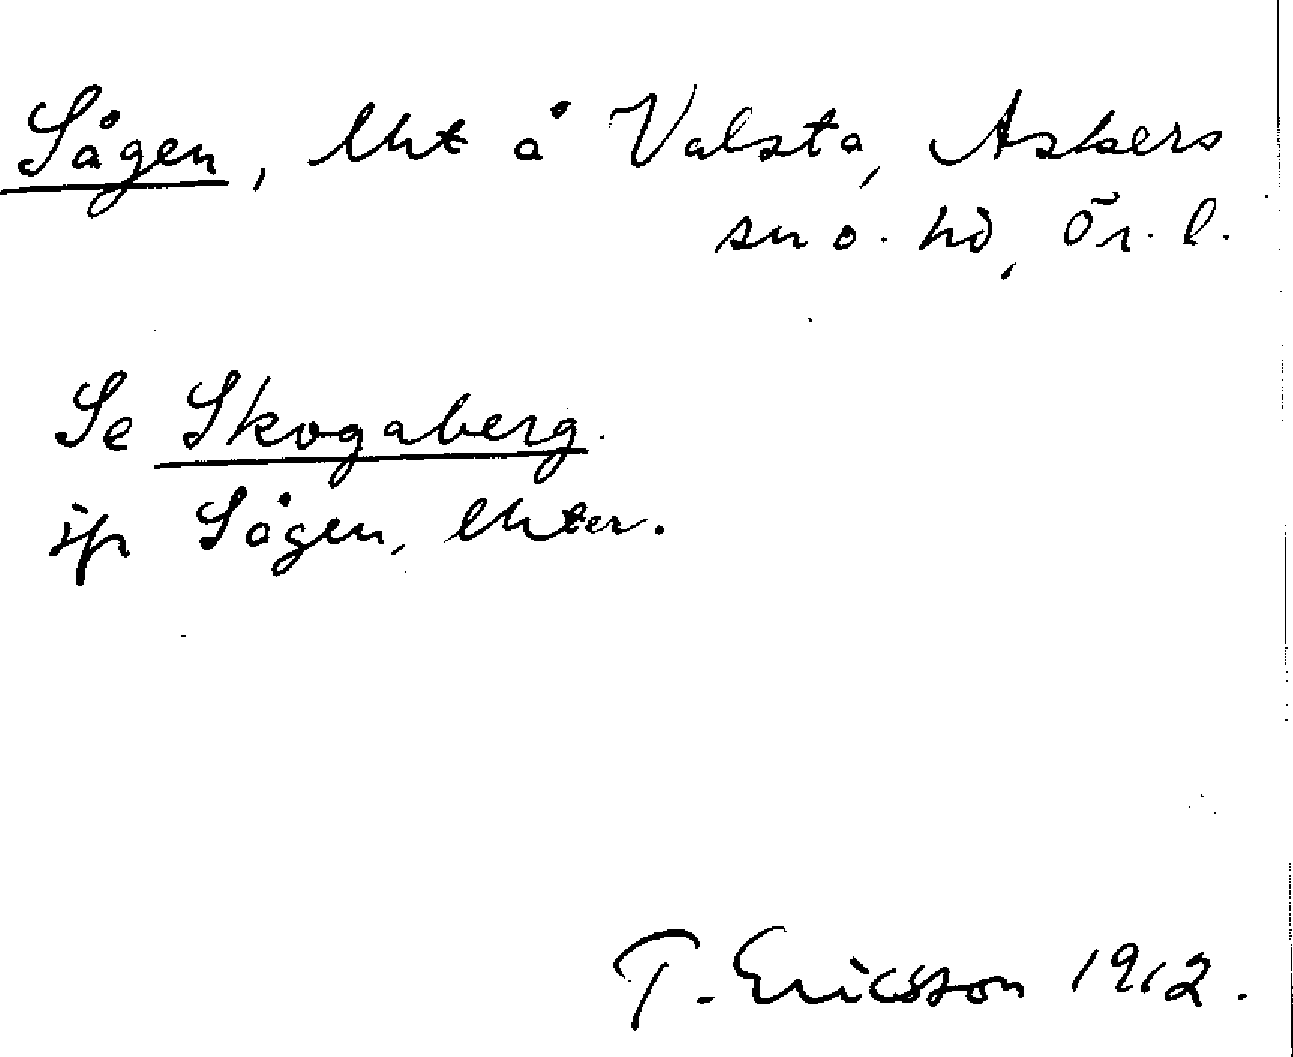 Sågen, lht å Valsta, Askers
sn o. hd, Ör. l.
Se Skogaberg
ift Sågen, lhter.
T. Ericsson 1912.